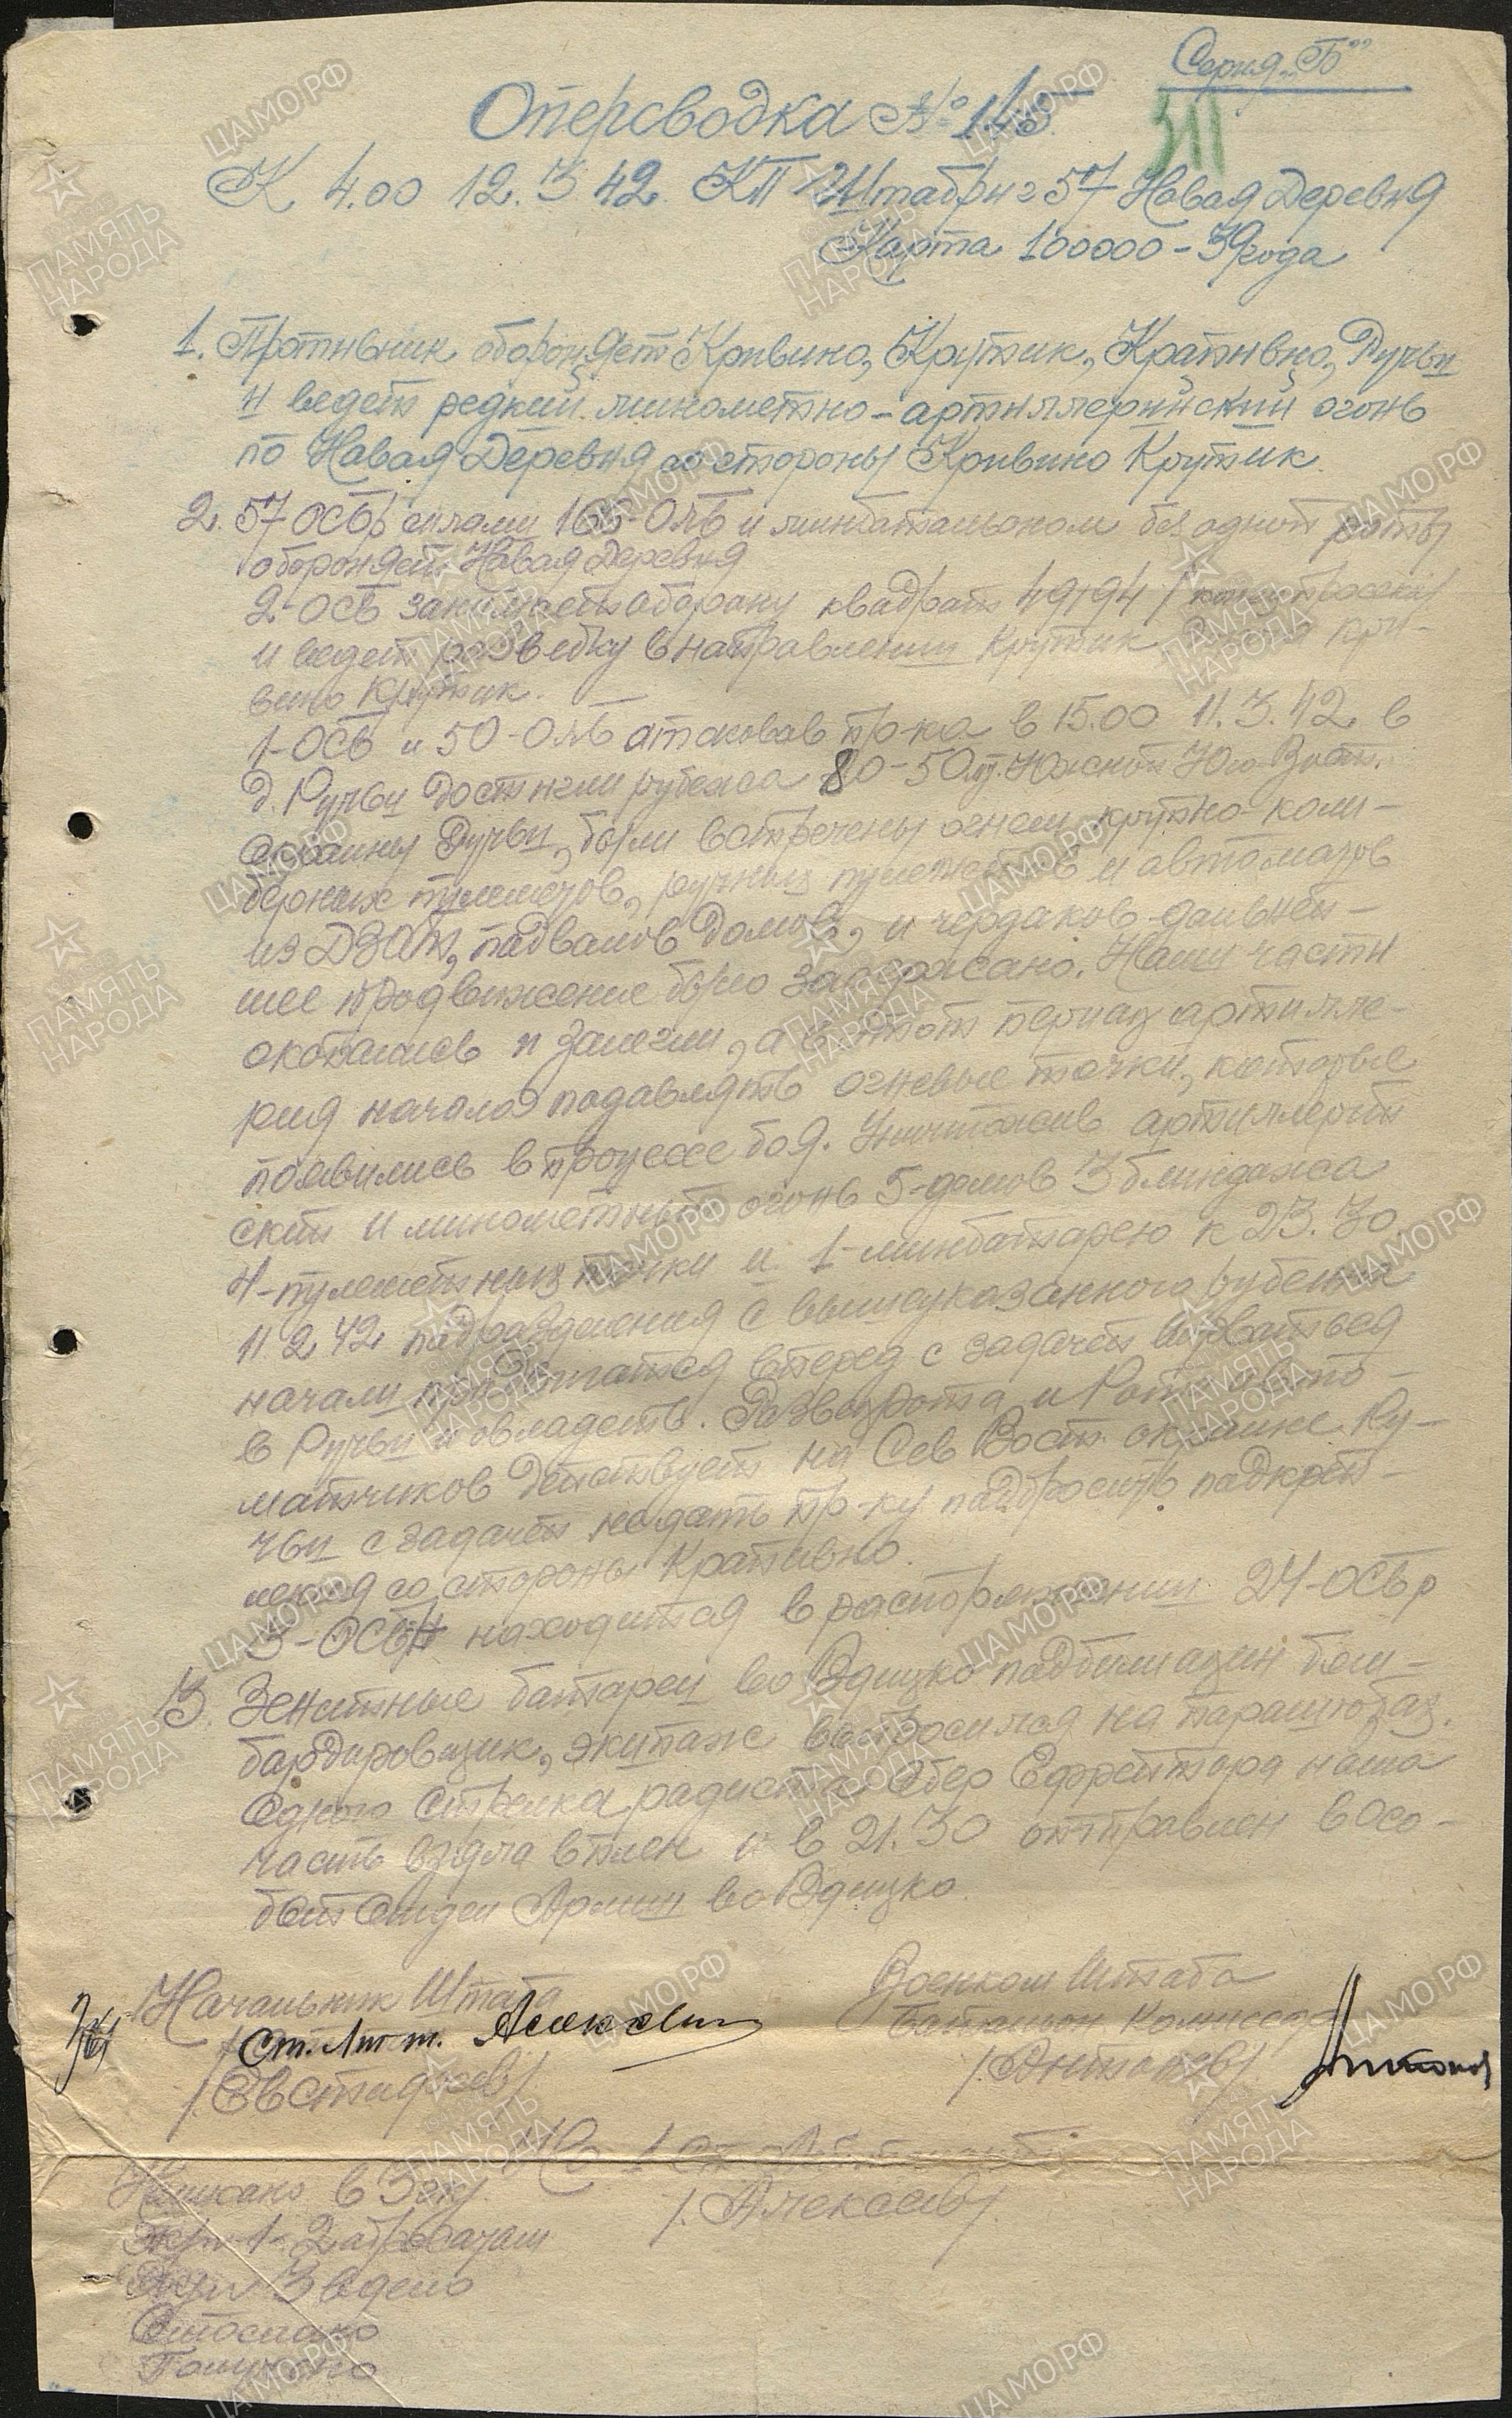 Серия „Б"
Оперсводка № 145
311
К 4.00 12.3.42. КП Штабриг 57 Новая Деревня
Карта 100000 – 39 года
1. Противник обороняет Кривино, Крутик, Крапивно, Ручьи
и ведет редкий минометно-артиллерийский огонь
по Новая Деревня со стороны Кривино Крутик.
2. 57 ОСБр силами 166-ОЛБ и минбатальоном без одной роты
обороняет Новая Деревня
2-ОСБ занимает оборону квадрат 4994
и ведет разведку в направлении Крутик кри-
вино Крутик.
1-ОСБ и 50-ОЛБ атаковав пр-ка в 15.00 11.3.42 в
д. Ручьи достигли рубежа 80-50 мт. Южной Юго Вост.
окраины Ручьи, были встречены огнем крупно-кали-
берных пулеметов, ручных пулеметов и автоматов
из ДЗОТ, подвалов домов, и чердаков дальней-
шее продвижение было задержано. Наши части
окопались и залегли, а в этот период артилле-
рия начала подавлять огневые точки, которые
появились в процессе боя. Уничтожив артиллерий
ский и минометный огонь 5-домов 3 блиндажа
4-пулеметных точки и 1-минбатарею к 23.30
11.2.42 подразделения с вышеуказанного рубежа
начали продвигатся вперед с задачей ворватьса
в Ручьи и овладеть. Разведрота и Рота авто-
матчиков действует на Сев Вост. окраине Ру-
чьи с задачей не дать пр-ку подбросить подкреп-
ления со стороны Крапивно.
3-ОСБ находится в распоряжении 24-ОСБр
3. Зенитные батареи во Вдицко подбили один бом-
бардировщик, экипаж выбросился на парашютах.
Одного Стрелка радиста Обер Ефрейтора наша
часть взяла в плен и в 21.30 отправлен в Осо-
бый Отдел Армии во Вдицко.
Начальник Штаба
Военком Штаба
Ст. Лит. Алексеев
Батальон Комиссар
/Евстифеев/
/Антонов/
Антонов
/Алексеев/
Написано в 3 экз
Экз 1-2 адресатам
Экз 3 в дело
Отослано
Получено
ЦАМО.РФ
ПАМЯТЬ
НАРОДА